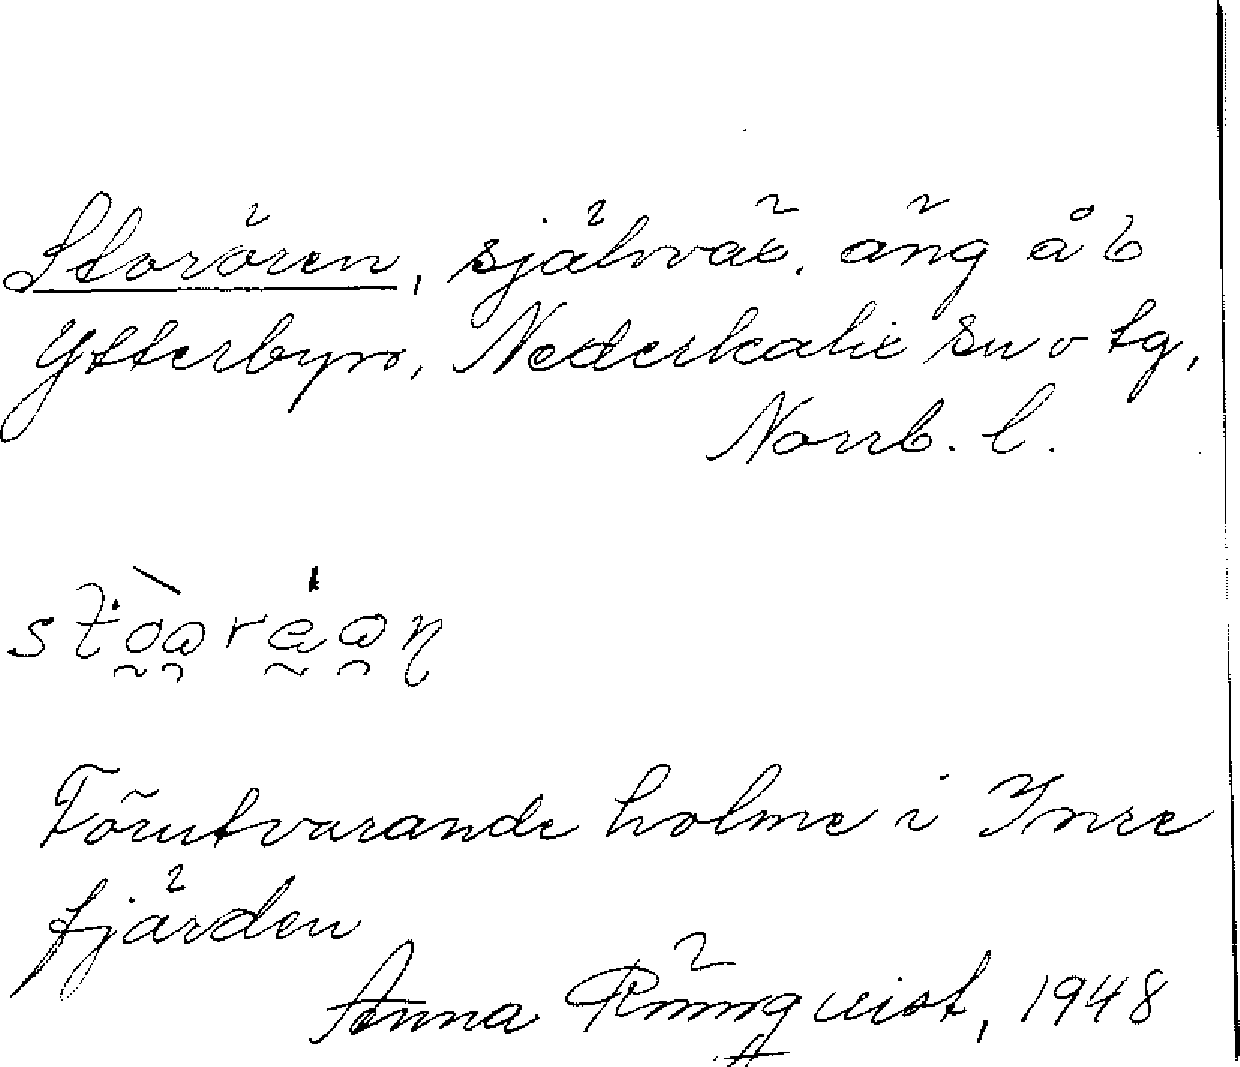 Storören, självväx. äng å b
Ytterbyn, Nederkalix sn o tg,
Norrb. l.
Förutvarande holme i Inre
fjärden
Anna Rönnqvist, 1948